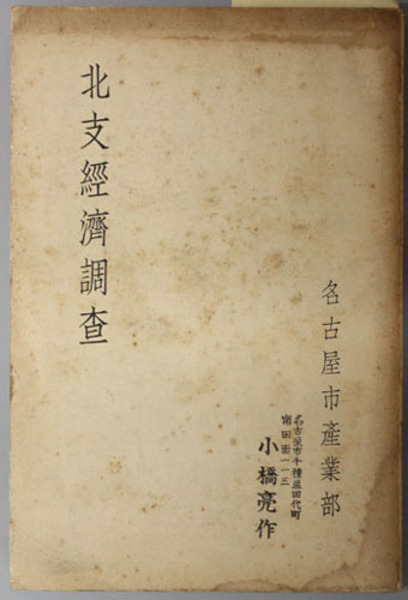 北支經濟調査
名古屋市產業部
名古屋市千種區田代町
小橋亮作